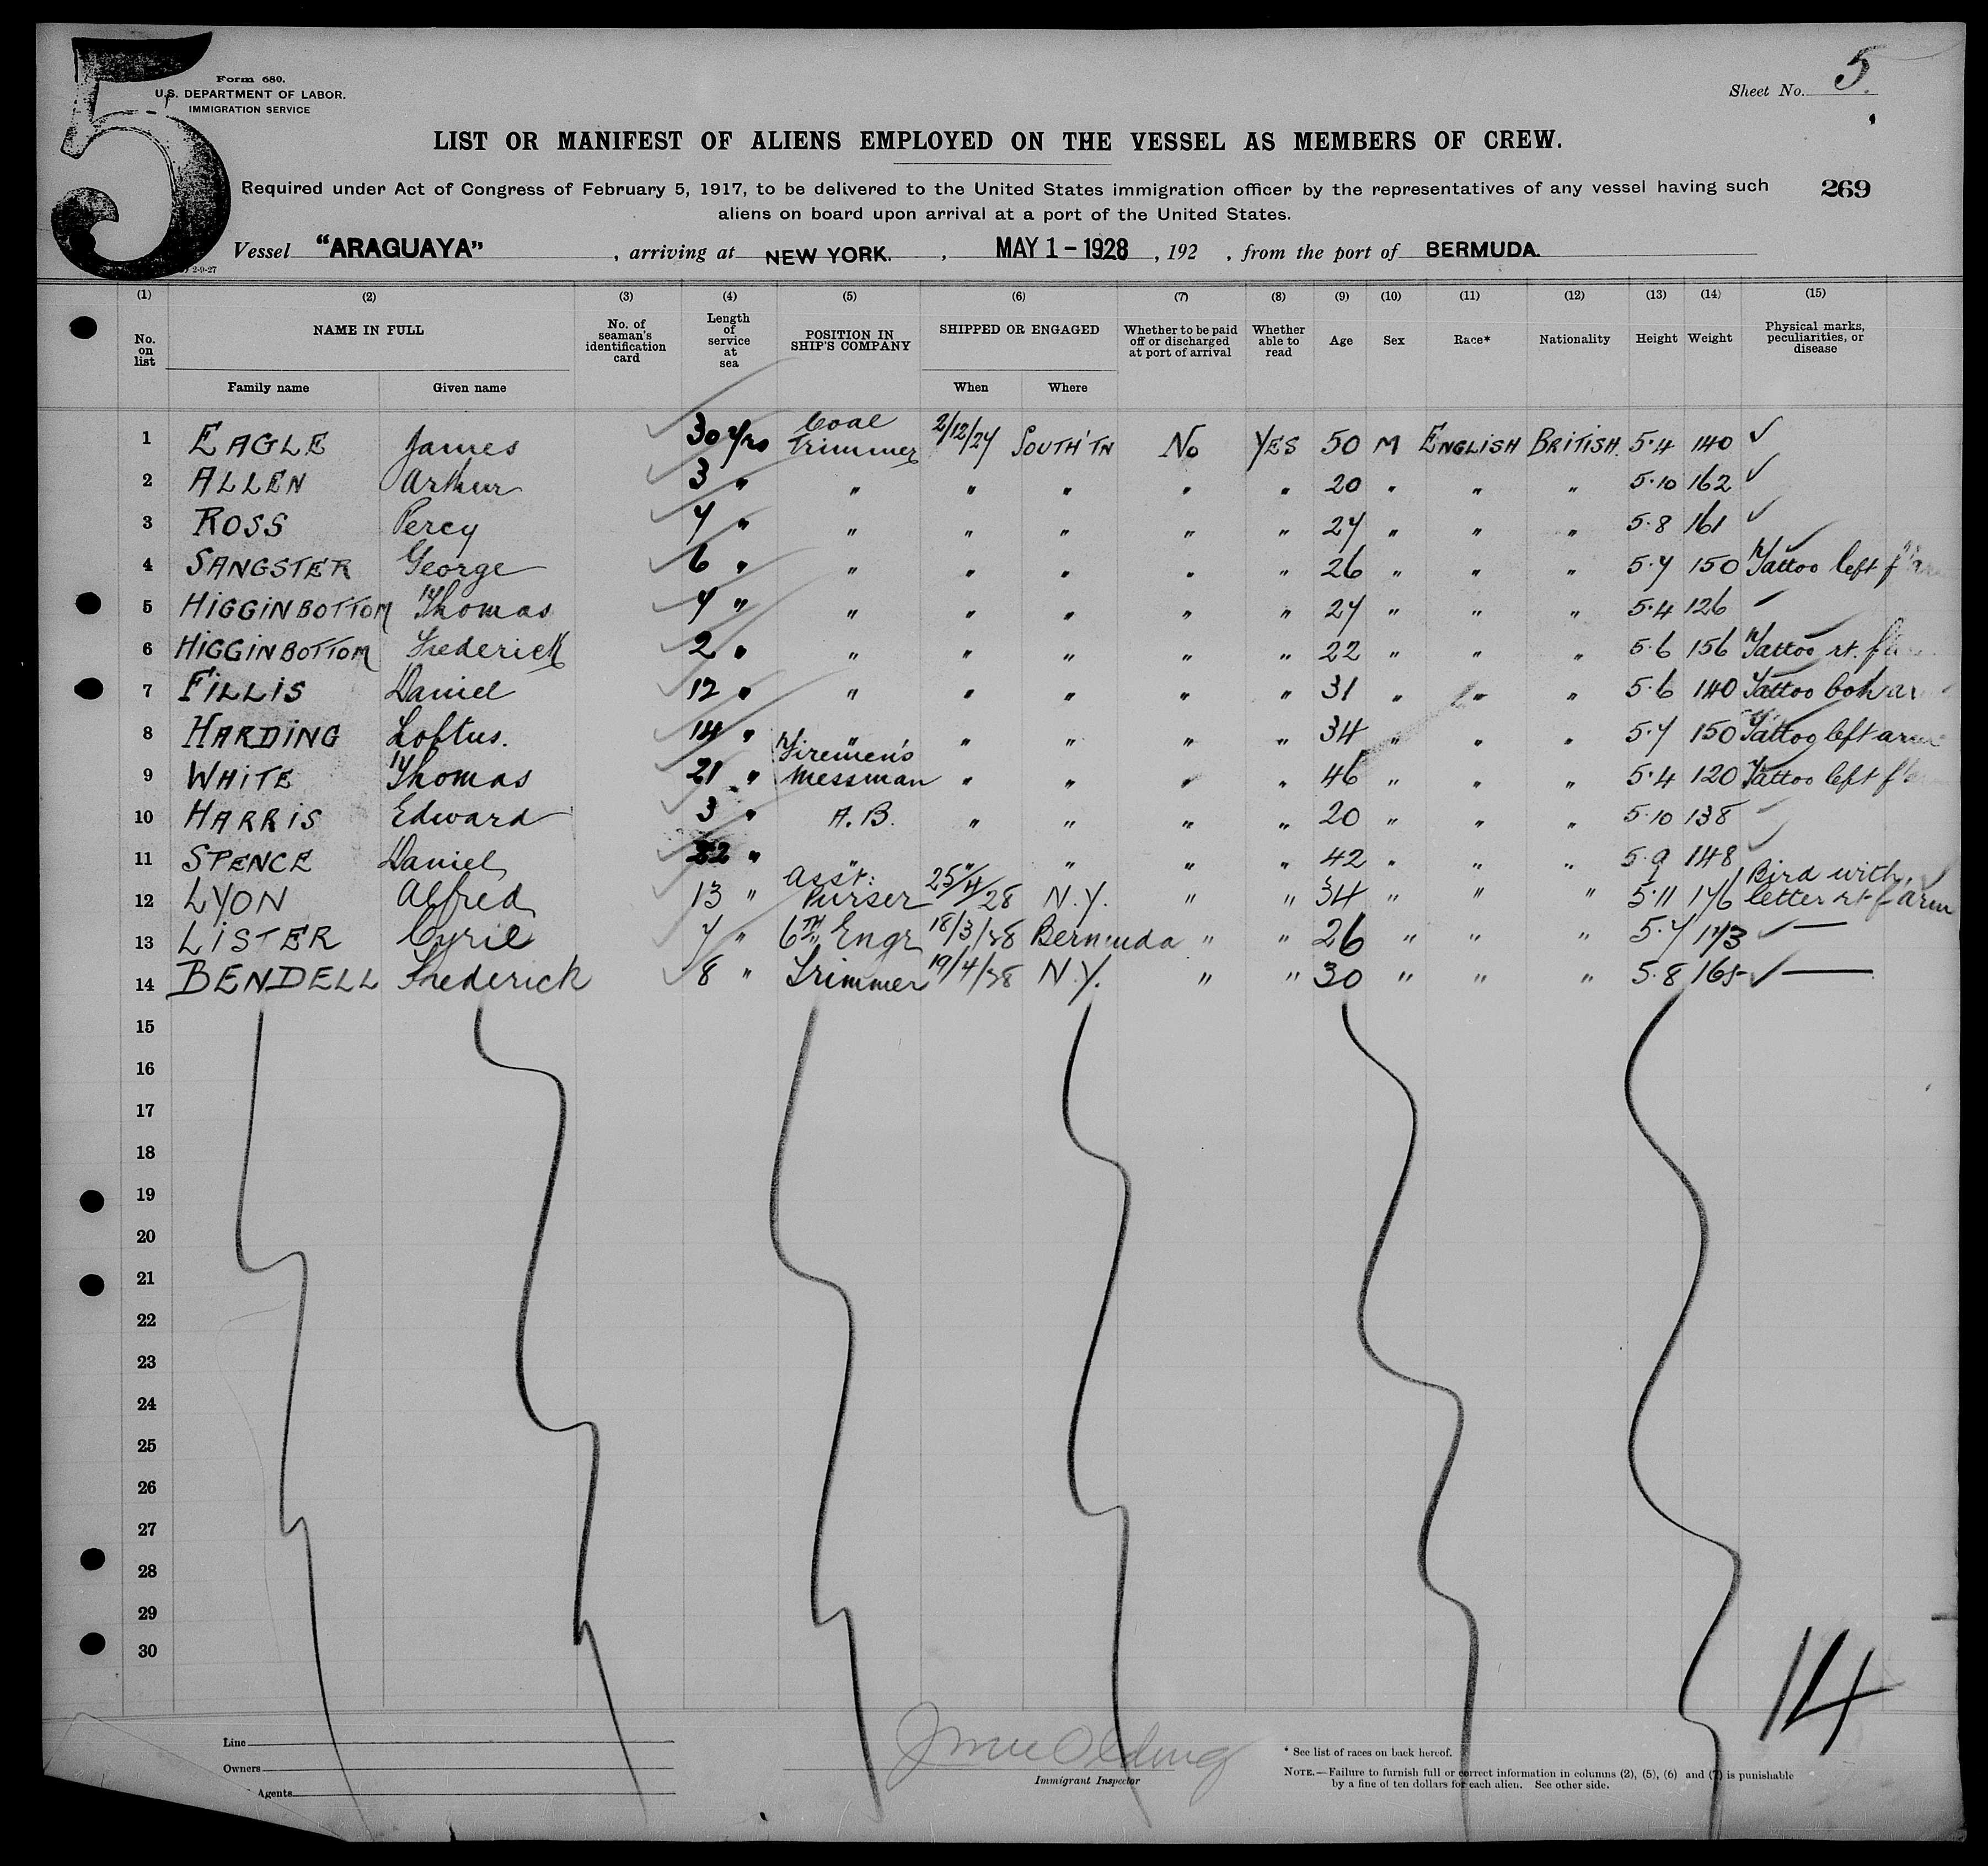 5
Form 680.
U.S. DEPARTMENT OF LABOR.
IMMIGRATION SERVICE
Sheet No. 5.
LIST OR MANIFEST OF ALIENS EMPLOYED ON THE VESSEL AS MEMBERS OF CREW.
Required under Act of Congress of February 5, 1917, to be delivered to the United States immigration officer by the representatives of any vessel having such
aliens on board upon arrival at a port of the United States.
269
Vessel "ARAGUAYA", arriving at NEW YORK., MAY 1-1928, 192 , from the port of BERMUDA.
2-9-27
(1) (2) (3) (4) (5) (6) (7) (8) (9) (10) (11) (12) (13) (14) (15)
No. on list NAME IN FULL No. of seaman's identification card Length of service at sea POSITION IN SHIP'S COMPANY SHIPPED OR ENGAGED Whether to be paid off or discharged at port of arrival Whether able to read Age Sex Race* Nationality Height Weight Physical marks, peculiarities, or disease
Family name Given name When Where
1 EAGLE James 30 yrs Coal Trimmer 2/12/27 SOUTH'TN No YES 50 M ENGLISH BRITISH. 5.4 140 ✓
2 ALLEN Arthur 3 " " " " " " 20 " " " 5.10 162 ✓
3 ROSS Percy 7 " " " " " " 27 " " " 5.8 161 ✓
4 SANGSTER George 6 " " " " " " 26 " " " 5.7 150 Tattoo left
5 HIGGINBOTTOM Thomas 7 " " " " " " 27 " " " 5.4 126 ✓
6 HIGGINBOTTOM Frederick 2 " " " " " " 22 " " " 5.6 156 Tattoo rt.
7 FILLIS Daniel 12 " " " " " " 31 " " " 5.6 140 Tattoo both
8 HARDING Loftus. 14 " " " " " " 34 " " " 5.7 150 Tattoo left arm
9 WHITE Thomas 21 " Firemen's Messman " " " " 46 " " " 5.4 120 Tattoo left
10 HARRIS Edward 3 " A.B. " " " " 20 " " " 5.10 138 ✓
11 SPENCE Daniel " " " " " " 42 " " " 5.9 148 ✓
12 LYON Alfred 13 " Asst: Purser 25/4/28 N.Y. " " 34 " " " 5.11 176 Bird with letter rt f arm
13 LISTER Cyril 7 " 6TH Engr 18/3/28 Bermuda " " 26 " " " 5.7 173 ✓ —
14 BENDELL Frederick 8 " Trimmer 19/4/28 N.Y. " " 30 " " " 5.8 165 ✓ —
15
16
17
18
19
20
21
22
23
24
25
26
27
28
29
30
14
Line
Owners
Agents
Immigrant Inspector
* See list of races on back hereof.
NOTE.—Failure to furnish full or correct information in columns (2), (5), (6) and (7) is punishable
by a fine of ten dollars for each alien. See other side.